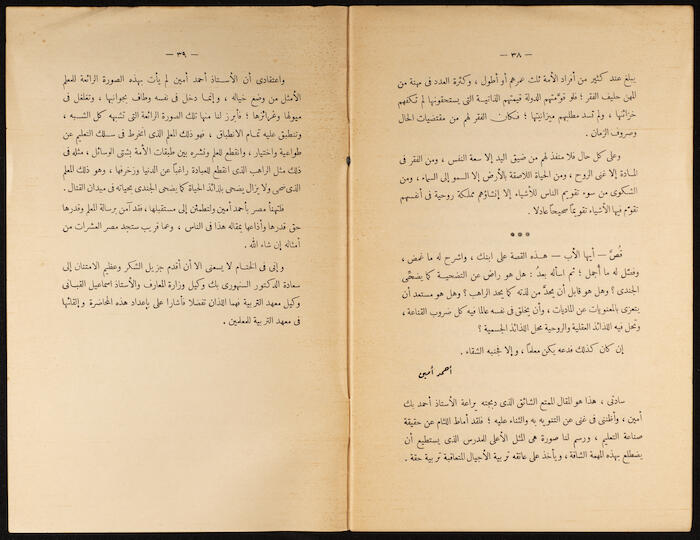 — ٣٨ —
يبلغ عند كثير من أفراد الأمة ثلث عمرهم أو أطول ، وكثرة العدد فى مهنة من
المهن حليف الفقر ؛ فلو قوّمتهم الدولة قيمتهم الذاتية التى يستحقونها لم تكفهم
خزائنها ، ولم تسد مطلبهم ميزانيتها ؛ فكان الفقر لهم من مقتضيات الحال
وصروف الزمان .
وعلى كل حال فلا منفذ لهم من ضيق اليد إلا سعة النفس ، ومن الفقر فى
المادة إلا غنى الروح ، ومن الحياة اللاصقة بالأرض إلا السمو إلى السماء ، ومن
الشكوى من سوء تقويم الناس للأشياء إلا إنشاؤهم مملكة روحية فى أنفسهم
تقوّم فيها الأشياء تقويمًا صحيحًا عادلا .
***
قُصَّ — أيها الأب — هذه القصة على ابنك ، واشرح له ما غمض ،
وفصّل له ما أجمل ؛ ثم اسأله بعدُ : هل هو راض عن التضحية كما يضحّى
الجندى ؟ وهل هو قابل أن يحدَّ من لذته كما يحد الراهب ؟ وهل هو مستعد أن
يتعزى بالمعنويات عن الماديات ، وأن يخلق فى نفسه عالما فيه كل ضروب القناعة ،
وتحل فيه اللذائذ العقلية والروحية محل اللذائذ الجسمية ؟
إن كان كذلك فدعه يكن معلمًا ، وإلا فجنبه الشقاء .
أحمد أمين
سادتى ، هذا هو المقال الممتع الشائق الذى دبجته براعة الأستاذ أحمد بك
أمين ، وأظننى فى غنى عن التنويه به والثناء عليه ؛ فلقد أماط اللثام عن حقيقة
صناعة التعليم ، ورسم لنا صورة هى المثل الأعلى للمدرس الذى يستطيع أن
يضطلع بهذه المهمة الشاقة ، ويأخذ على عاتقه تربية الأجيال المتعاقبة تربية حقة .
— ٣٩ —
واعتقادى أن الأستاذ أحمد أمين لم يأت بهذه الصورة الرائعة للمعلم
الأمثل من وضع خياله ، وإنما دخل فى نفسه وطاف بجوانبها ، وتغلغل فى
ميولها وغرائزها ؛ فأبرز لنا منها تلك الصورة الرائعة التى تشبهه كل الشبه ،
وتنطبق عليه تمام الانطباق ، فهو ذلك المعلم الذى انخرط فى سلك التعليم عن
طواعية واختيار ، وانقطع للعلم ونشره بين طبقات الأمة بشتى الوسائل ، مثله فى
ذلك مثل الراهب الذى انقطع للعبادة راغبًا عن الدنيا وزخرفها ، وهو ذلك المعلم
الذى ضحى ولا يزال يضحى بلذائذ الحياة كما يضحى الجندى بحياته فى ميدان القتال .
فلتهنأ مصر بأحمد أمين ولتطمئن إلى مستقبلها ، فقد آمن برسالة المعلم وقدرها
حق قدرها وأذاعها بمقاله هذا فى الناس ، وعما قريب ستجد مصر العشرات من
أمثاله إن شاء الله .
و إنى فى الختام لا يسعنى إلا أن أقدم جزيل الشكر وعظيم الامتنان إلى
سعادة الدكتور السنهورى بك وكيل وزارة المعارف والأستاذ اسماعيل القبانى
وكيل معهد التربية فهما اللذان تفضلا فأشارا على بإعداد هذه المحاضرة و إلقائها
فى معهد التربية للمعلمين .